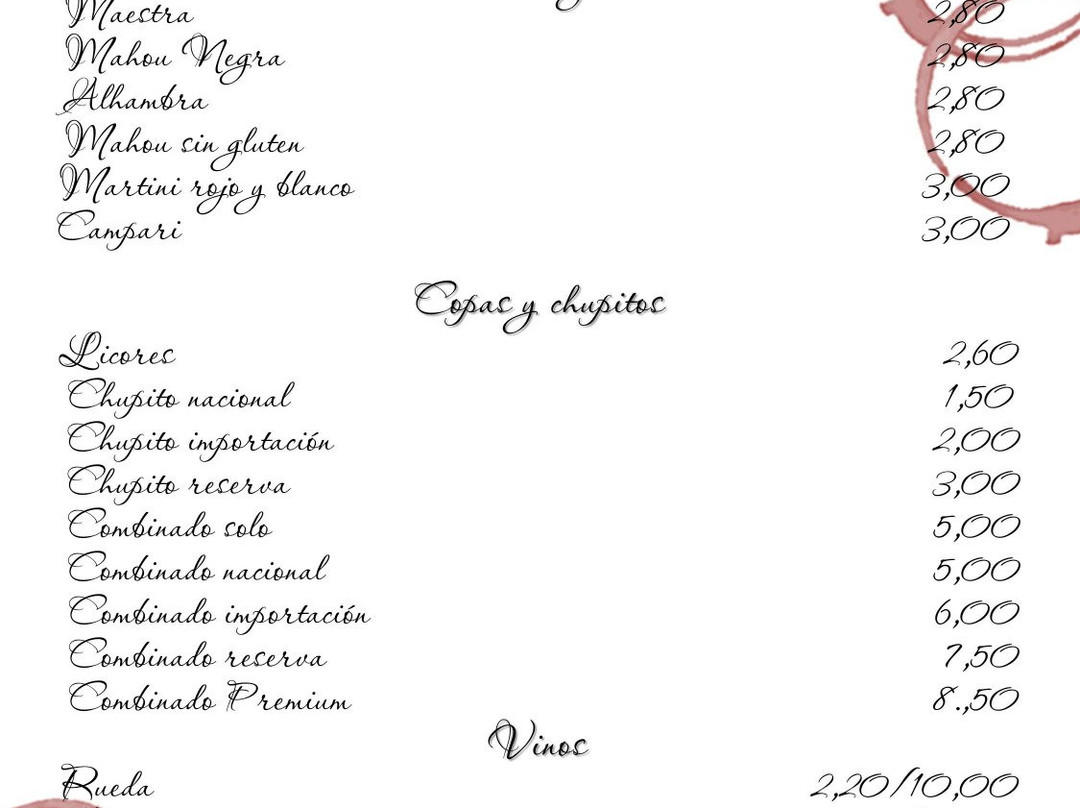 Maestra 2,80
Mahou Negra 2,80
Alhambra 2,80
Mahou sin gluten 2,80
Martini rojo y blanco 3,00
Campari 3,00
Copas y chupitos
Licores 2,60
Chupito nacional 1,50
Chupito importación 2,00
Chupito reserva 3,00
Combinado solo 5,00
Combinado nacional 5,00
Combinado importación 6,00
Combinado reserva 7,50
Combinado Premium 8.,50
Vinos
Rueda 2,20/10,00